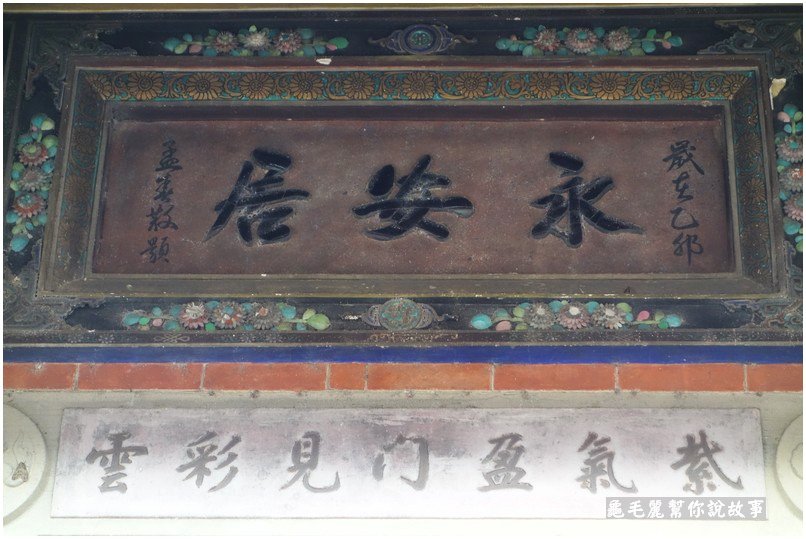 歲在乙卯
永安居
孟春敬題
紫氣盈門見彩雲
龜毛麗幫你說故事